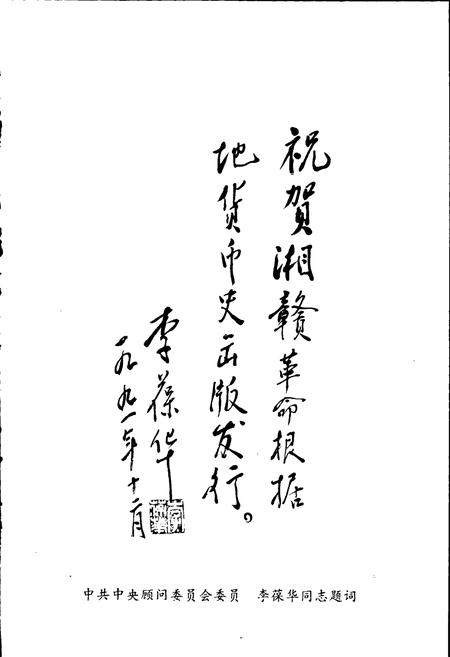 祝贺湘赣革命根据
地货币史出版发行。
李葆华
一九九一年十二月
中共中央顾问委员会委员 李葆华同志题词